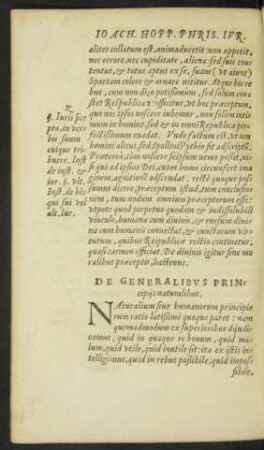 IOACH. HOPP. PHRIS. IVR.
aliter collatum est, animaduertit: non appetit,
nec errore, nec cupiditate, aliena: sed suis con
tentus, & totus aptus ex se, suam (vt aiunt)
Spartam colere & ornare nititur. Atque his re
bus, cum non dico potissimùm, sed solum cons
stet Respublica & efficitur, vt hoc præceptum,
quo nos ipsos noscere iubemur, non solùm initi
mum in homine, sed & in omni Republica per
fectissimum euadat. Vnde factum est, vt non
homini alicui, sed Apollini Pythio sit adscriptũ.
Præterea, cùm noscere seipsum nemo possit, ni
si qui ad ipsius Dei, cuius homo circunfert ima
ginem, agnitionẽ ascendat: rectè quoque pos
sumus dicere, præceptum istud, tum conclusio
nem, tum nodum omnium præceptorum esse:
vtpote quod perpetuo quodam & indissolubili
vinculo, humana cum diuinis, & rursum diui
na cum humanis connectat, & cunctarum vir
tutum, quibus Reipublicæ rectio continetur,
quasi carmen efficiat. De diuinis igitur siue mo
ralibus præceptis, hactenus.
§. Iuris præ
pta, in ver
bis suum
cuique tri
buere. Inst.
de iust. &
iur. §. vlt.
Inst. de his
qui sui vel
alt. iur.
DE GENERALIBVS PRIN-
cipijs naturalibus.
NAturalium siue humanorum principio
rum ratio latissimè quoque patet: nam
quemadmodum ex superioribus dijudic
camus, quid in quaque re bonum, quid ma
lum, quid vtile, quid inutile sit: ita ex istis in
telligimus, quid in rebus possibile, quid impos
sibile,